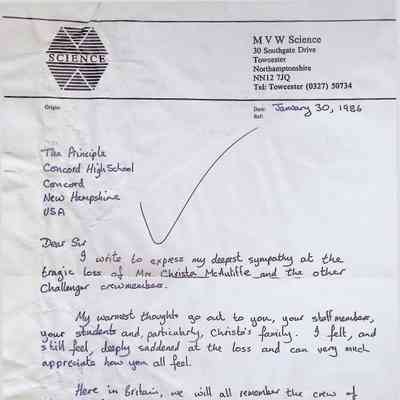 SCIENCE
M V W Science
30 Southgate Drive
Towcester
Northamptonshire
NN12 7JQ
Tel: Towcester (0327) 50734
Origin:
Date: January 30, 1986
Ref:
The Principle
Concord High School
Concord
New Hampshire
USA
Dear Sir
I write to express my deepest sympathy at the
tragic loss of Mrs. Christa McAuliffe and the other
Challenger crewmembers.
My warmest thoughts go out to you, your staff members,
your students and, particularly, Christa's family. I felt, and
still feel, deeply saddened at the loss and can very much
appreciate how you all feel.
Here in Britain, we will all remember the crew of